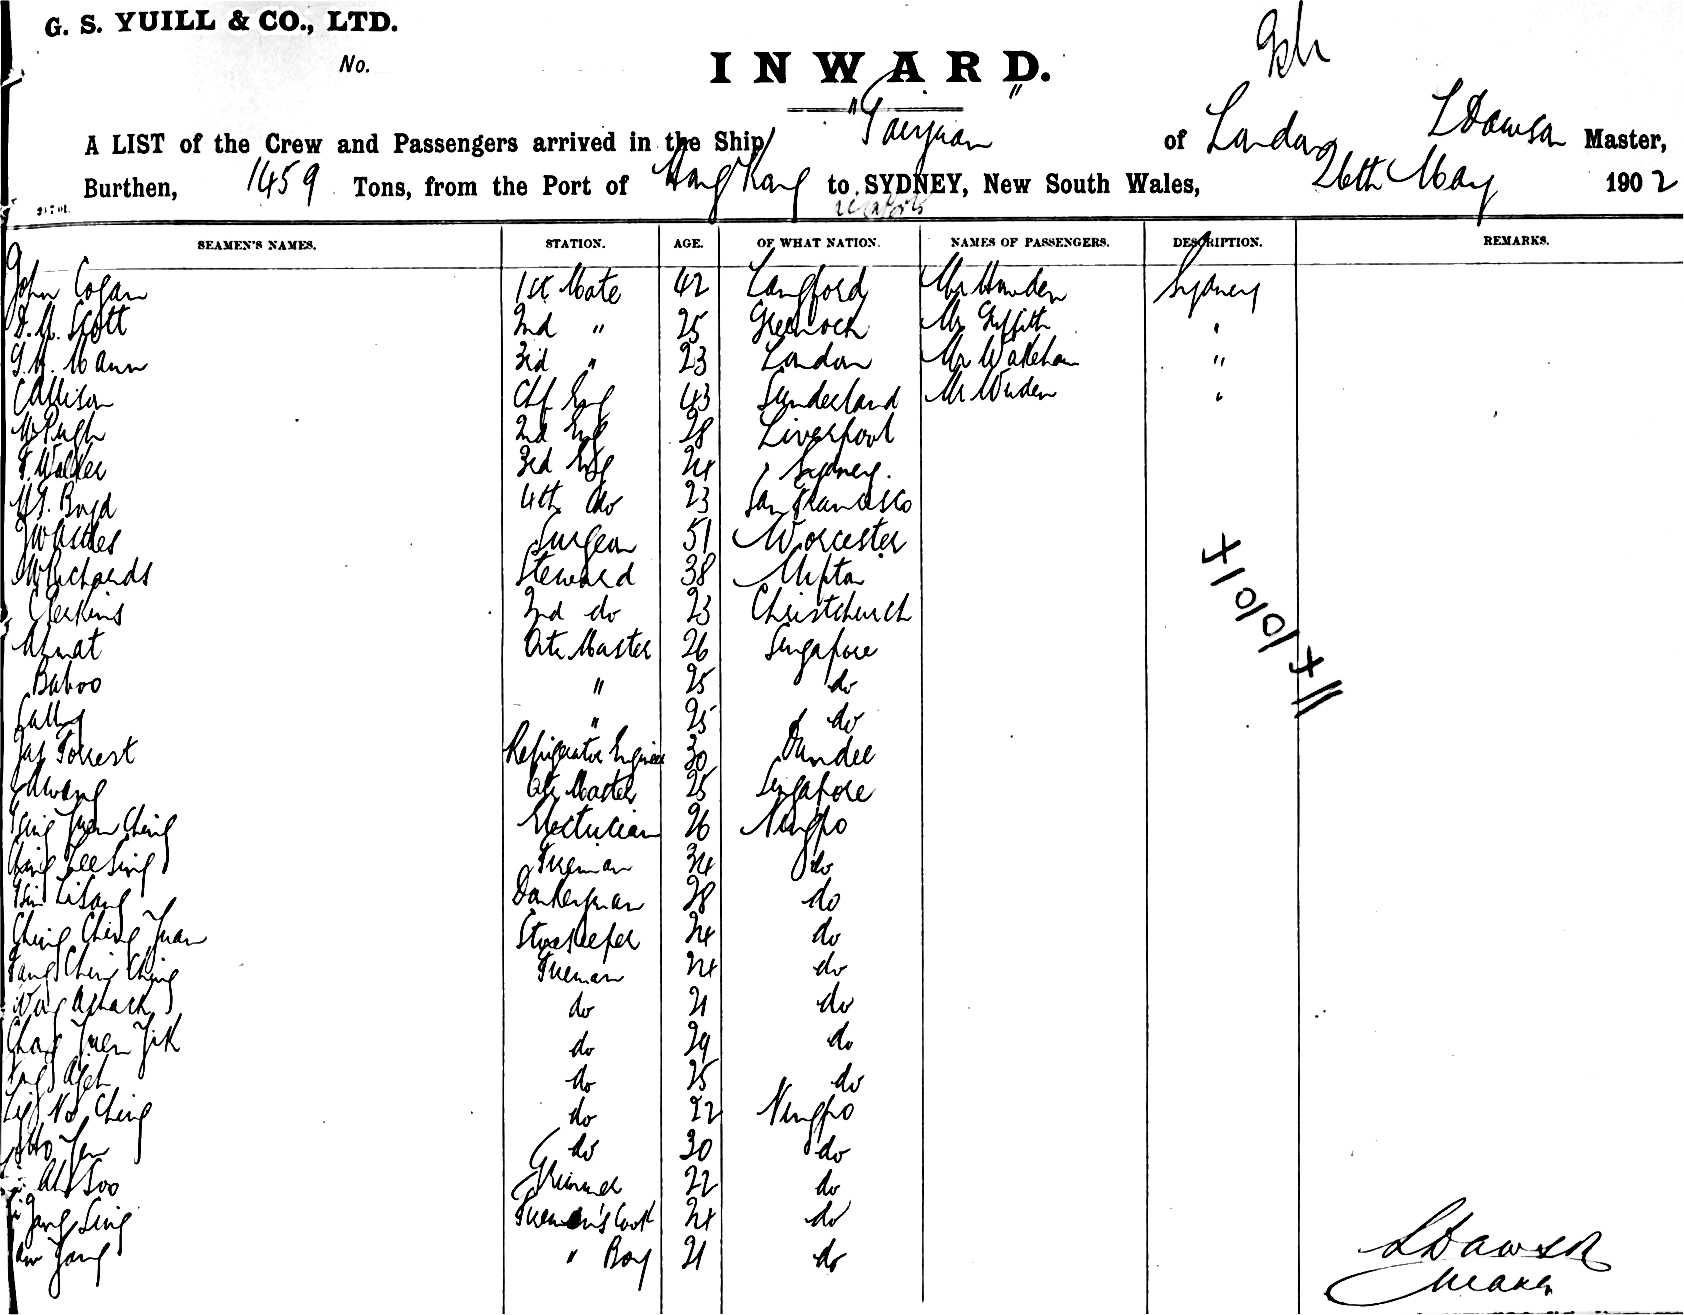 G. S. YUILL & CO., LTD.
No.
INWARD.
A LIST of the Crew and Passengers arrived in the Ship "Taiyuan" of London L Dawson Master,
Burthen, 1459 Tons, from the Port of Hong Kong to SYDNEY, New South Wales, 26th May 1902
SEAMEN'S NAMES. STATION. AGE. OF WHAT NATION. NAMES OF PASSENGERS. DESCRIPTION. REMARKS.
John Cogan 1st Mate 42 Langford Mr Howden Sydney
D. M. Scott 2nd " 25 Greenock Mr Griffith "
G. H. Mann 3rd " 23 London Mr Wakeham "
C Allison Chf Eng 43 Sunderland Mr "
W Pugh 2nd Eng 28 Liverpool
F. Walker 3rd Eng 24 Sydney.
Boyd 4th do 23 San Francisco
J W Astles Surgeon 51 Worcester
W Richards Steward 38 Clifton
C Jerkins 2nd do 23 Christchurch
Ahmat Qtr Master 26 Singapore
Baboo " 25 do
" 25 do
Jas Forrest Refrigerator Engineer 30 Dundee
Awang Qtr Master 25 Singapore
Tsing Yuen Ching Electrician 26 Ningpo
Ching Lee Sing Fireman 34 do
Donkeyman 28 do
Ching Ching Yuan Storekeeper 34 do
Fang Ching Ching Fireman 24 do
do 21 do
Chang Yuen Yik do 29 do
do 25 do
Ching do 22 Ningpo
do 30 do
Ah Soo Trimmer 22 do
Yang Sing Firemen's Cook 24 do
Yang " Boy 21 do
L Dawson
Master